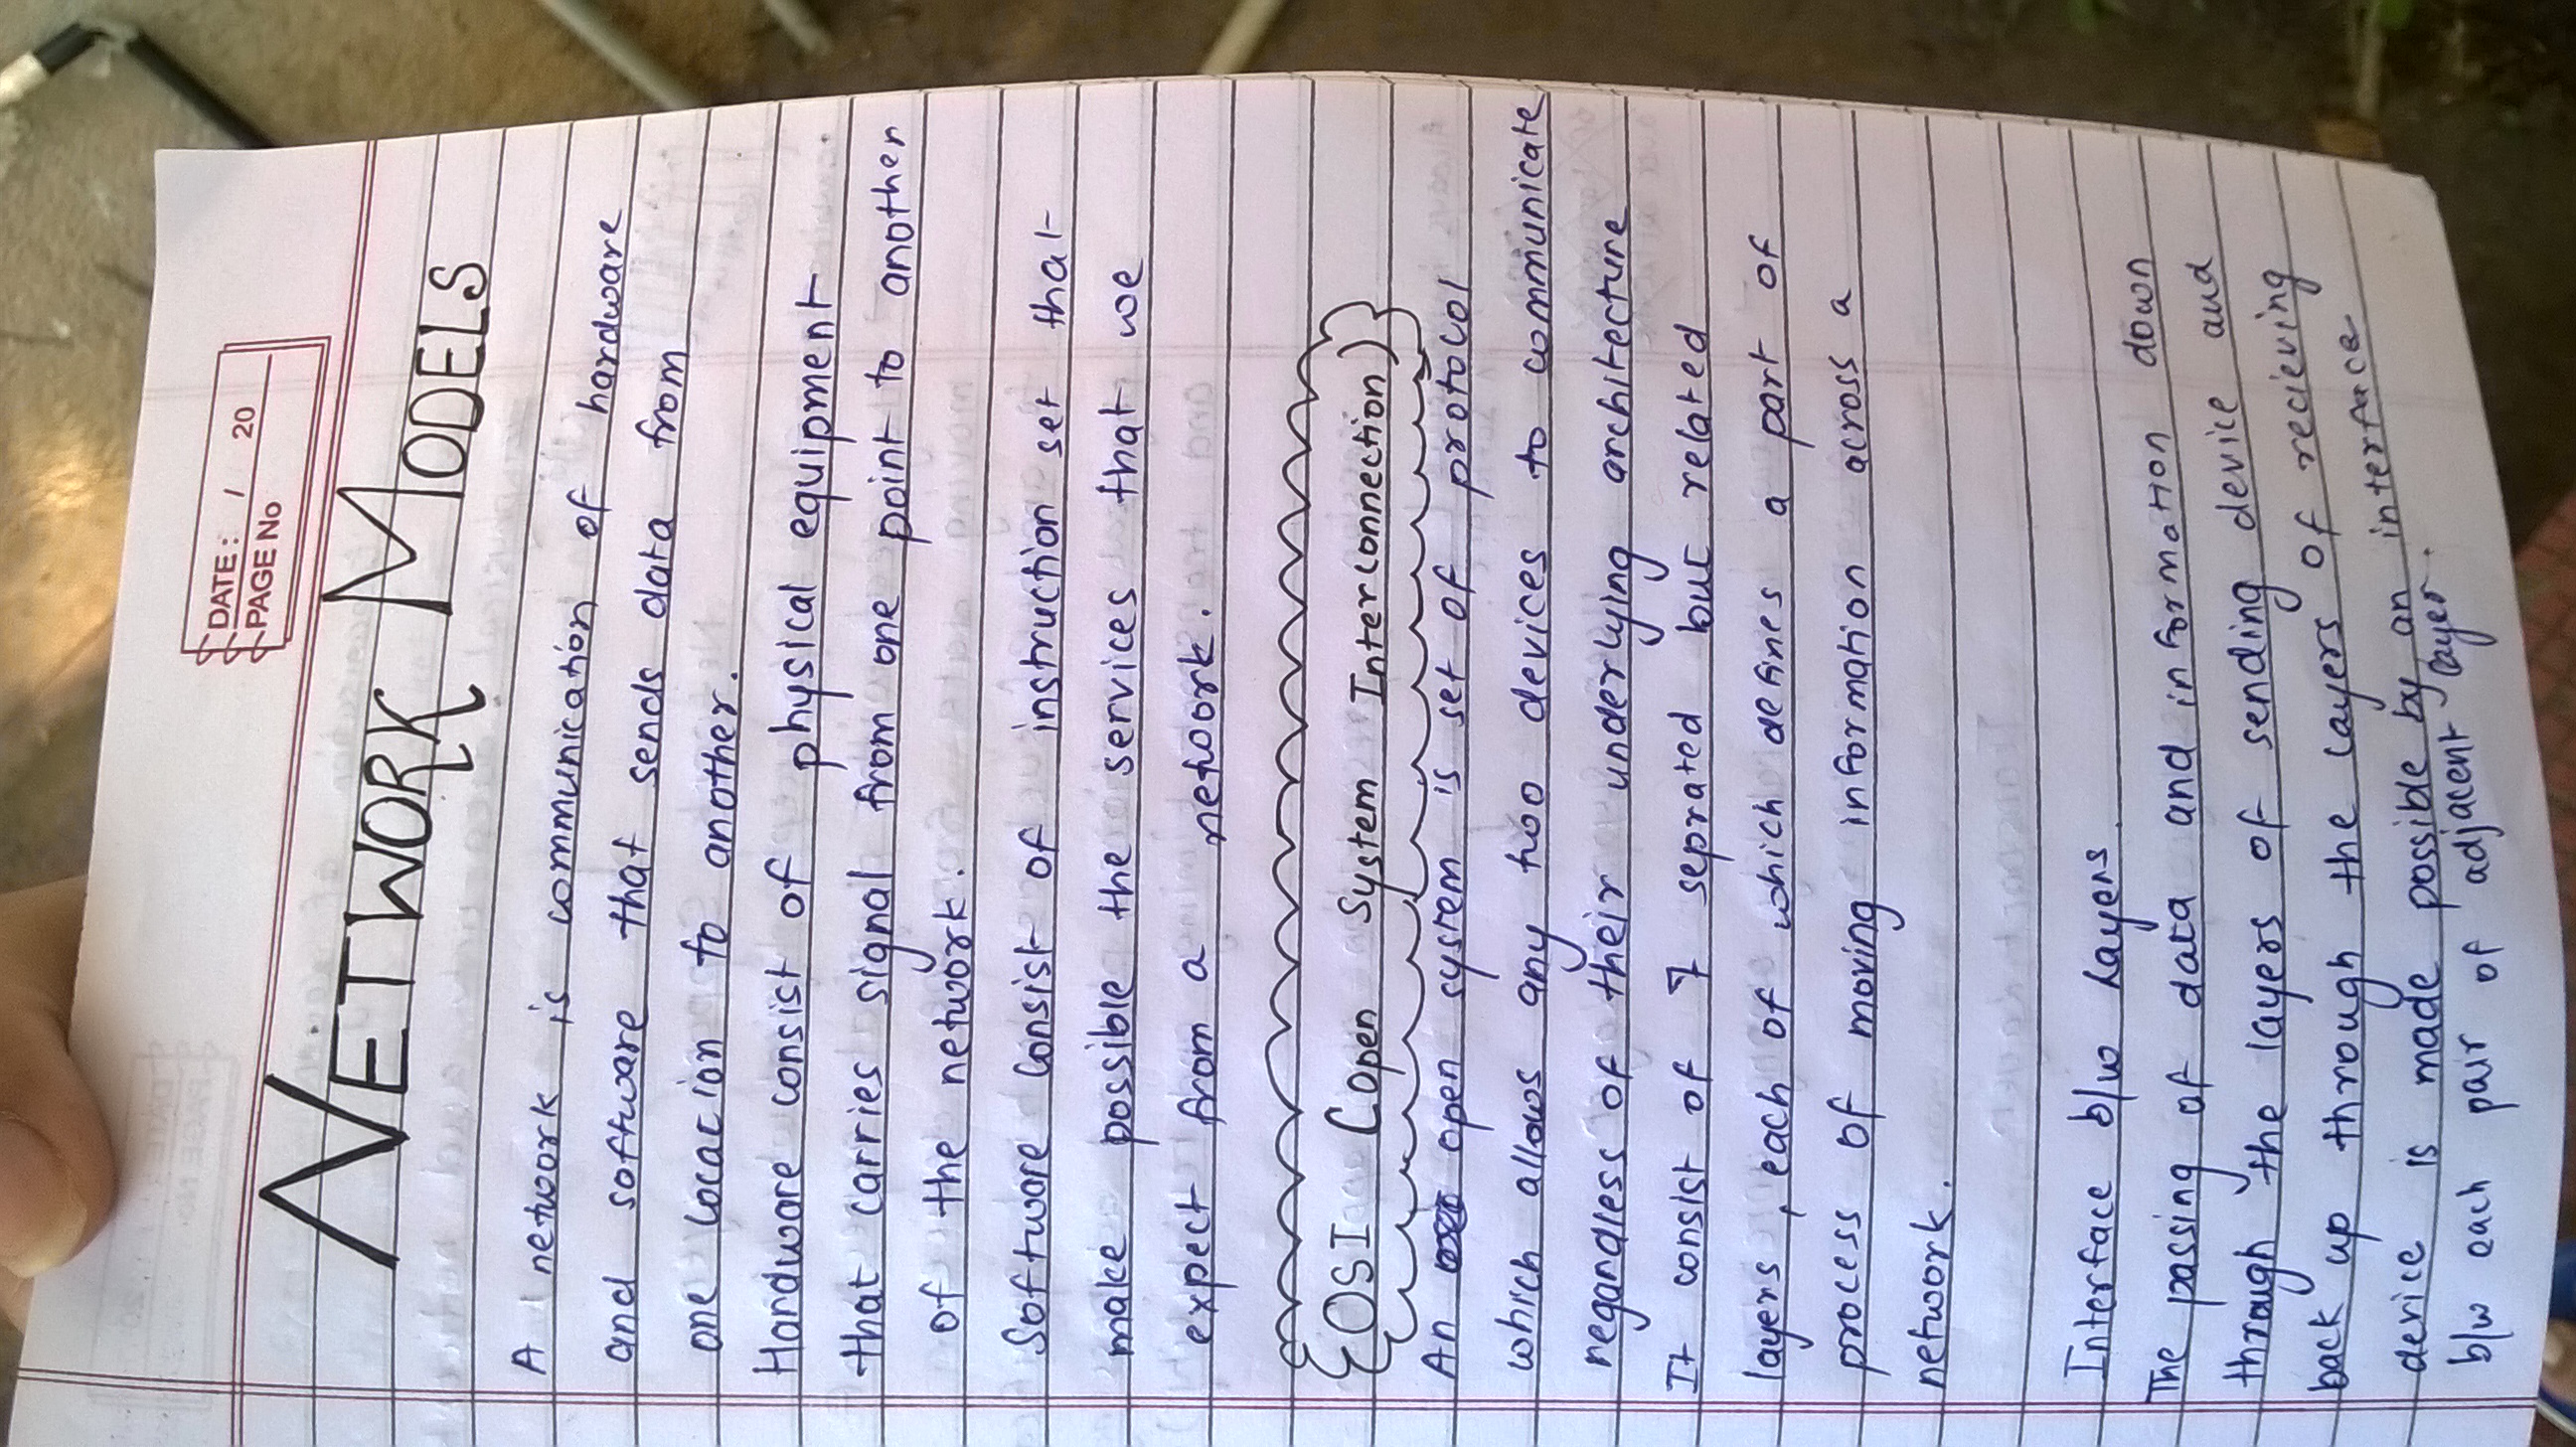 DATE: / 20
PAGE No
NETWORK MODELS
A network is communication of hardware
and software that sends data from
one location to another.
Hardware consist of physical equipment
that carries signal from one point to another
of the network.
Software consist of instruction set that
make possible the services that we
expect from a network.
OSI (open System Interconnection)
An open system is set of protocol
which allows any two devices to communicate
regardless of their underlying architecture
It consist of 7 seprated but related
layers, each of which defines a part of
process of moving information across a
network.
Interface b/w Layers
The passing of data and information down
through the layers of sending device and
back up through the layers of recieving
device is made possible by an interface
b/w each pair of adjacent layer.